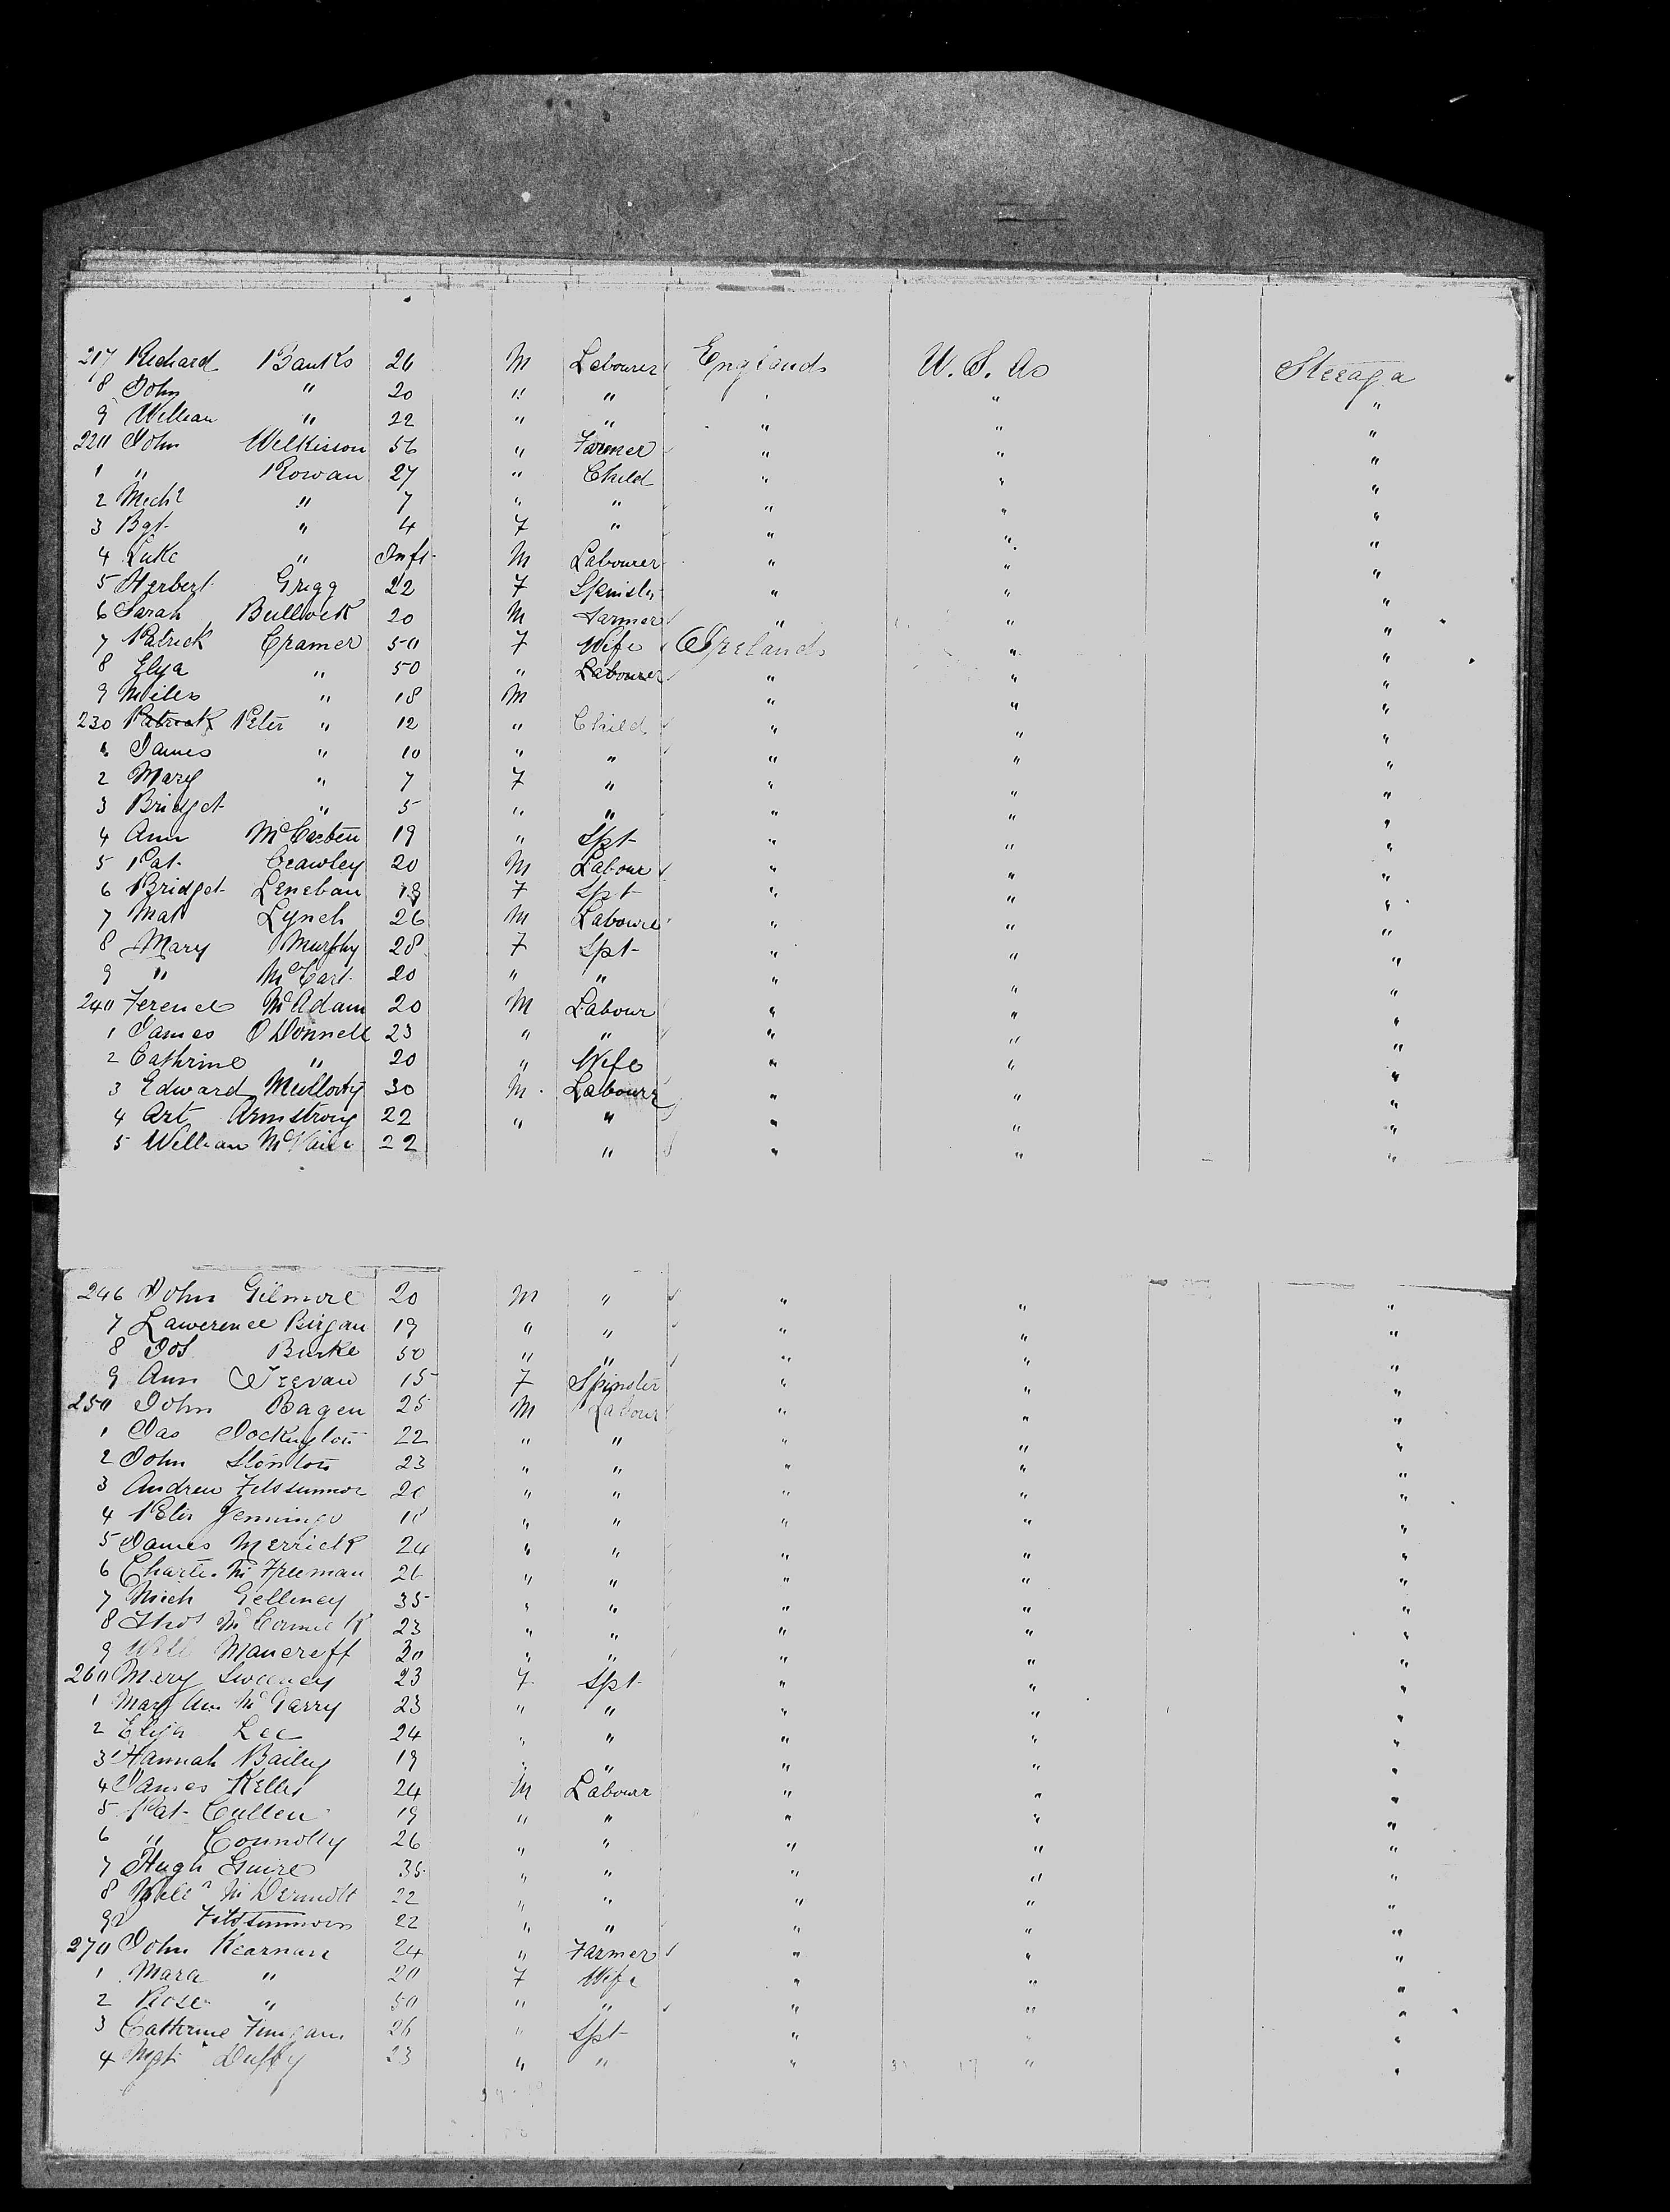 217 Richard Banks 26 M Labourer England U. S. As Steeage
8 John " 20 " " " " "
9 William " 22 " " " " "
220 John Wilkisson 56 " Farmer " " "
1 " Rowan 27 " Child " " "
2 Michl " 7 " " " " "
3 Bgt " 4 F " " " "
4 Luke " Inft M Labourer " " "
5 Herbert Grigg 22 F Spinster " " "
6 Sarah Bullock 20 M Farmer " " "
7 Patrick Cramer 50 F Wife Ireland " "
8 Elya " 50 " Labourer " " "
9 Miles " 18 M " " "
230 Patrick Peter " 12 " Child " " "
1 James " 10 " " " " "
2 Mary " 7 F " " " "
3 Bridget " 5 " " " " "
4 Ann 19 " Spt " " "
5 Pat Crawley 20 M Labour " " "
6 Bridget Lenehan 18 F Spt " " "
7 Mat Lynch 26 M Laboure " " "
8 Mary Murphy 28 F Spt " " "
9 " McCart 20 " " " " "
240 Terence McAdam 20 M Labour " " "
1 James O'Donnell 23 " " " " "
2 Cathrine " 20 " Wife " " "
3 Edward 30 M Labourr " " "
4 Art Armstrong 22 " " " " "
5 William 22 " " " "
246 John Gilmore 20 M " " " "
7 Lawerence Birgan 19 " " " " "
8 Jos Burke 50 " " " " "
9 Ann 15 F Spinster " " "
250 John Bagen 25 M Labour " " "
1 Jas Dockington 22 " " " " "
2 John Stonton 23 " " " " "
3 Andrew " " " " "
4 Peter Jennings 18 " " " " "
5 James Merrick 24 " " " " "
6 Charles M Freeman 26 " " " " "
7 Mich Gelleney 35 " " " " "
8 Thos McCormick 23 " " " " "
9 Will Mancreff 30 " " " " "
260 Mery Sweeney 23 F Spt " " "
1 Mary Ann McGarry 23 " " " " "
2 Eliza Lee 24 " " " " "
3 Hannah Bailey 19 " " " " "
4 James Kelly 24 M Labourr " " "
5 Pat Cullen 19 " " " " "
6 " Connolly 26 " " " " "
7 Hugh Guire 35 " " " " "
8 McDermott 22 " " " " "
9 22 " " " " "
270 John Kearnan 24 " Farmer " " "
1 Mara " 20 F Wife " " "
2 Rose " 50 " " " " "
3 Catherine Finigan 26 " Spt " " "
4 Mgt Duffy 23 " " " " "